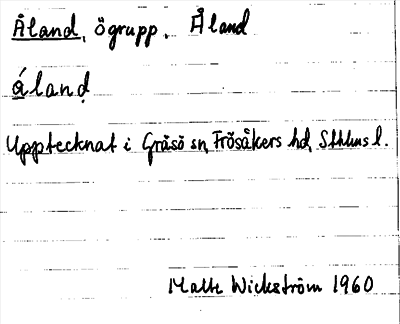 Åland, ögrupp. Åland
áland
Upptecknat i Gräsö sn, Frösåkers hd, Sthlms l.
Wickström 1960